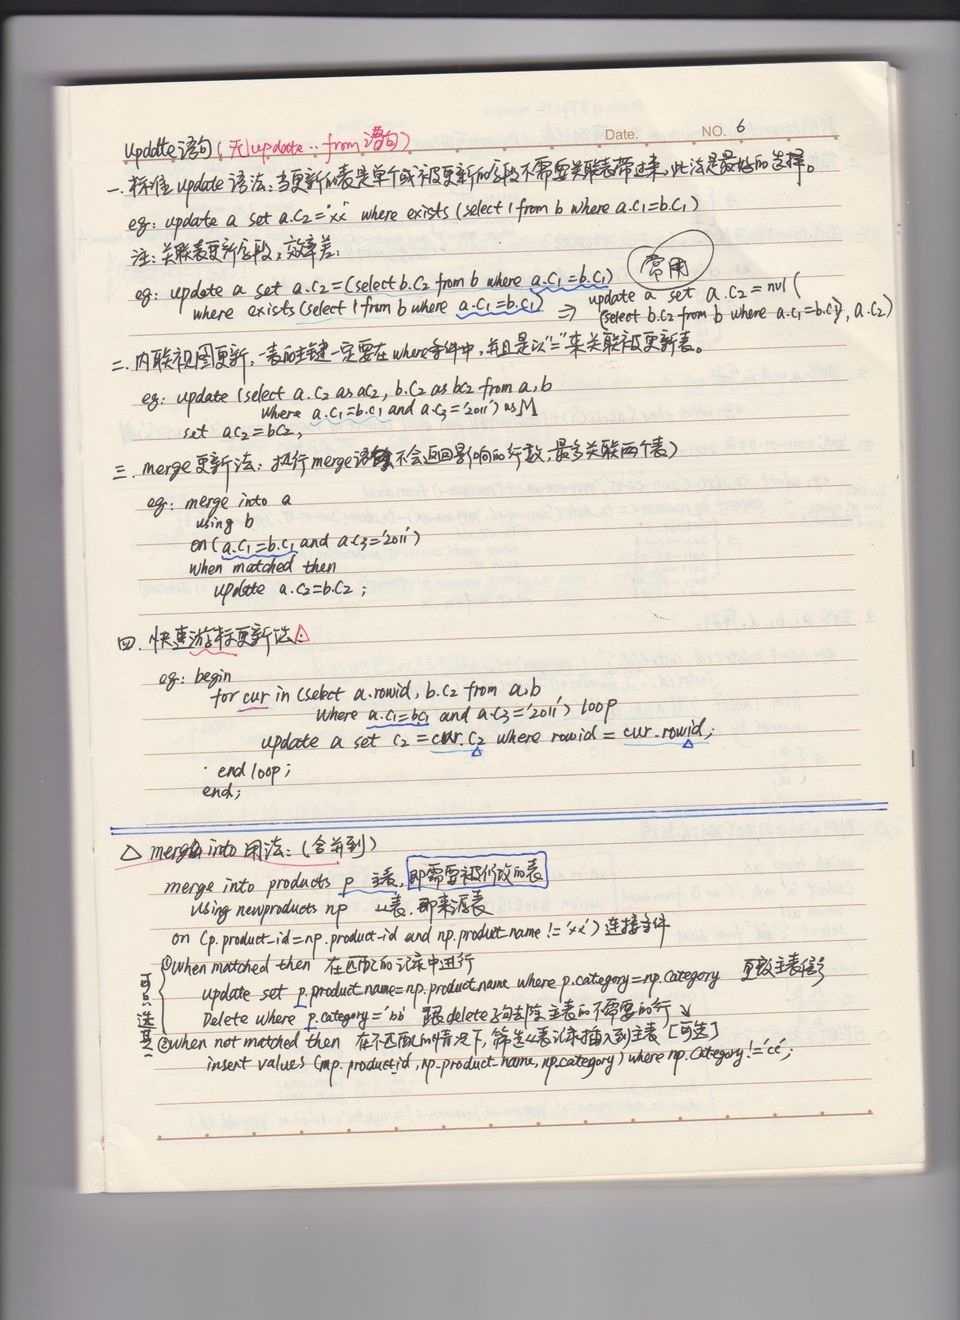 Date. NO. 6
update语句(无update...from语句)
一. 标准update语法: 当更新的表是单个或被更新的字段不需要关联表带过来, 此法是最好的选择。
eg: update a set a.c2='xx' where exists (select 1 from b where a.c1=b.c1)
注: 关联表更新字段, 效率差;
常用
eg: update a set a.c2=(select b.c2 from b where a.c1=b.c1)
where exists (select 1 from b where a.c1=b.c1) ⇒ update a set a.c2=nvl(
(select b.c2 from b where a.c1=b.c1), a.c2)
二. 内联视图更新, 一表的主键一定要在where条件中, 并且是以"="来关联被更新表。
eg: update (select a.c2 as ac2, b.c2 as bc2 from a,b
where a.c1=b.c1 and a.c3='2011') as M
set ac2=bc2,
三. merge更新法: 执行merge语句不会返回影响的行数, 最多关联两个表)
eg: merge into a
using b
on (a.c1=b.c1 and a.c3='2011')
when matched then
update a.c2=b.c2;
四. 快速游标更新法△
eg: begin
for cur in (select a.rowid, b.c2 from a,b
where a.c1=b.c1 and a.c3='2011') loop
update a set c2=cur.c2 where rowid=cur.rowid;
end loop;
end;
△ merge into 用法: (合并到)
merge into products p 主表, 即需要被修改的表
using newproducts np 从表, 即来源表
on (p.product_id=np.product_id and np.product_name!='xx') 连接条件
①when matched then 在匹配的记录中进行
update set p.product_name=np.product_name where p.category=np.category 更改主表信息
Delete where p.category='bb' 跟delete子句去除主表的不需要的行
可只选其一
②when not matched then 在不匹配的情况下, 筛选从表记录插入到主表 [可选]
insert values (np.product_id, np.product_name, np.category) where np.category!='cc';